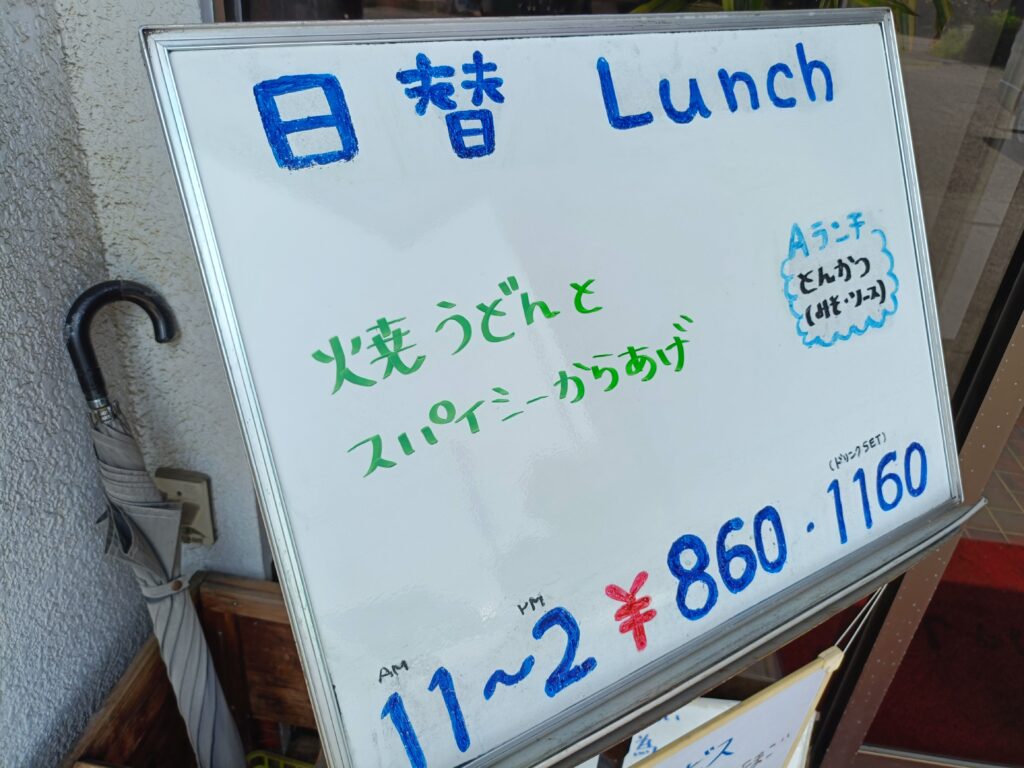 日替 Lunch
Aランチ
とんかつ
(みそ・ソース)
焼うどんと
スパイシーからあげ
(ドリンクSET)
AM 11~PM 2 ¥860・1160
ビス